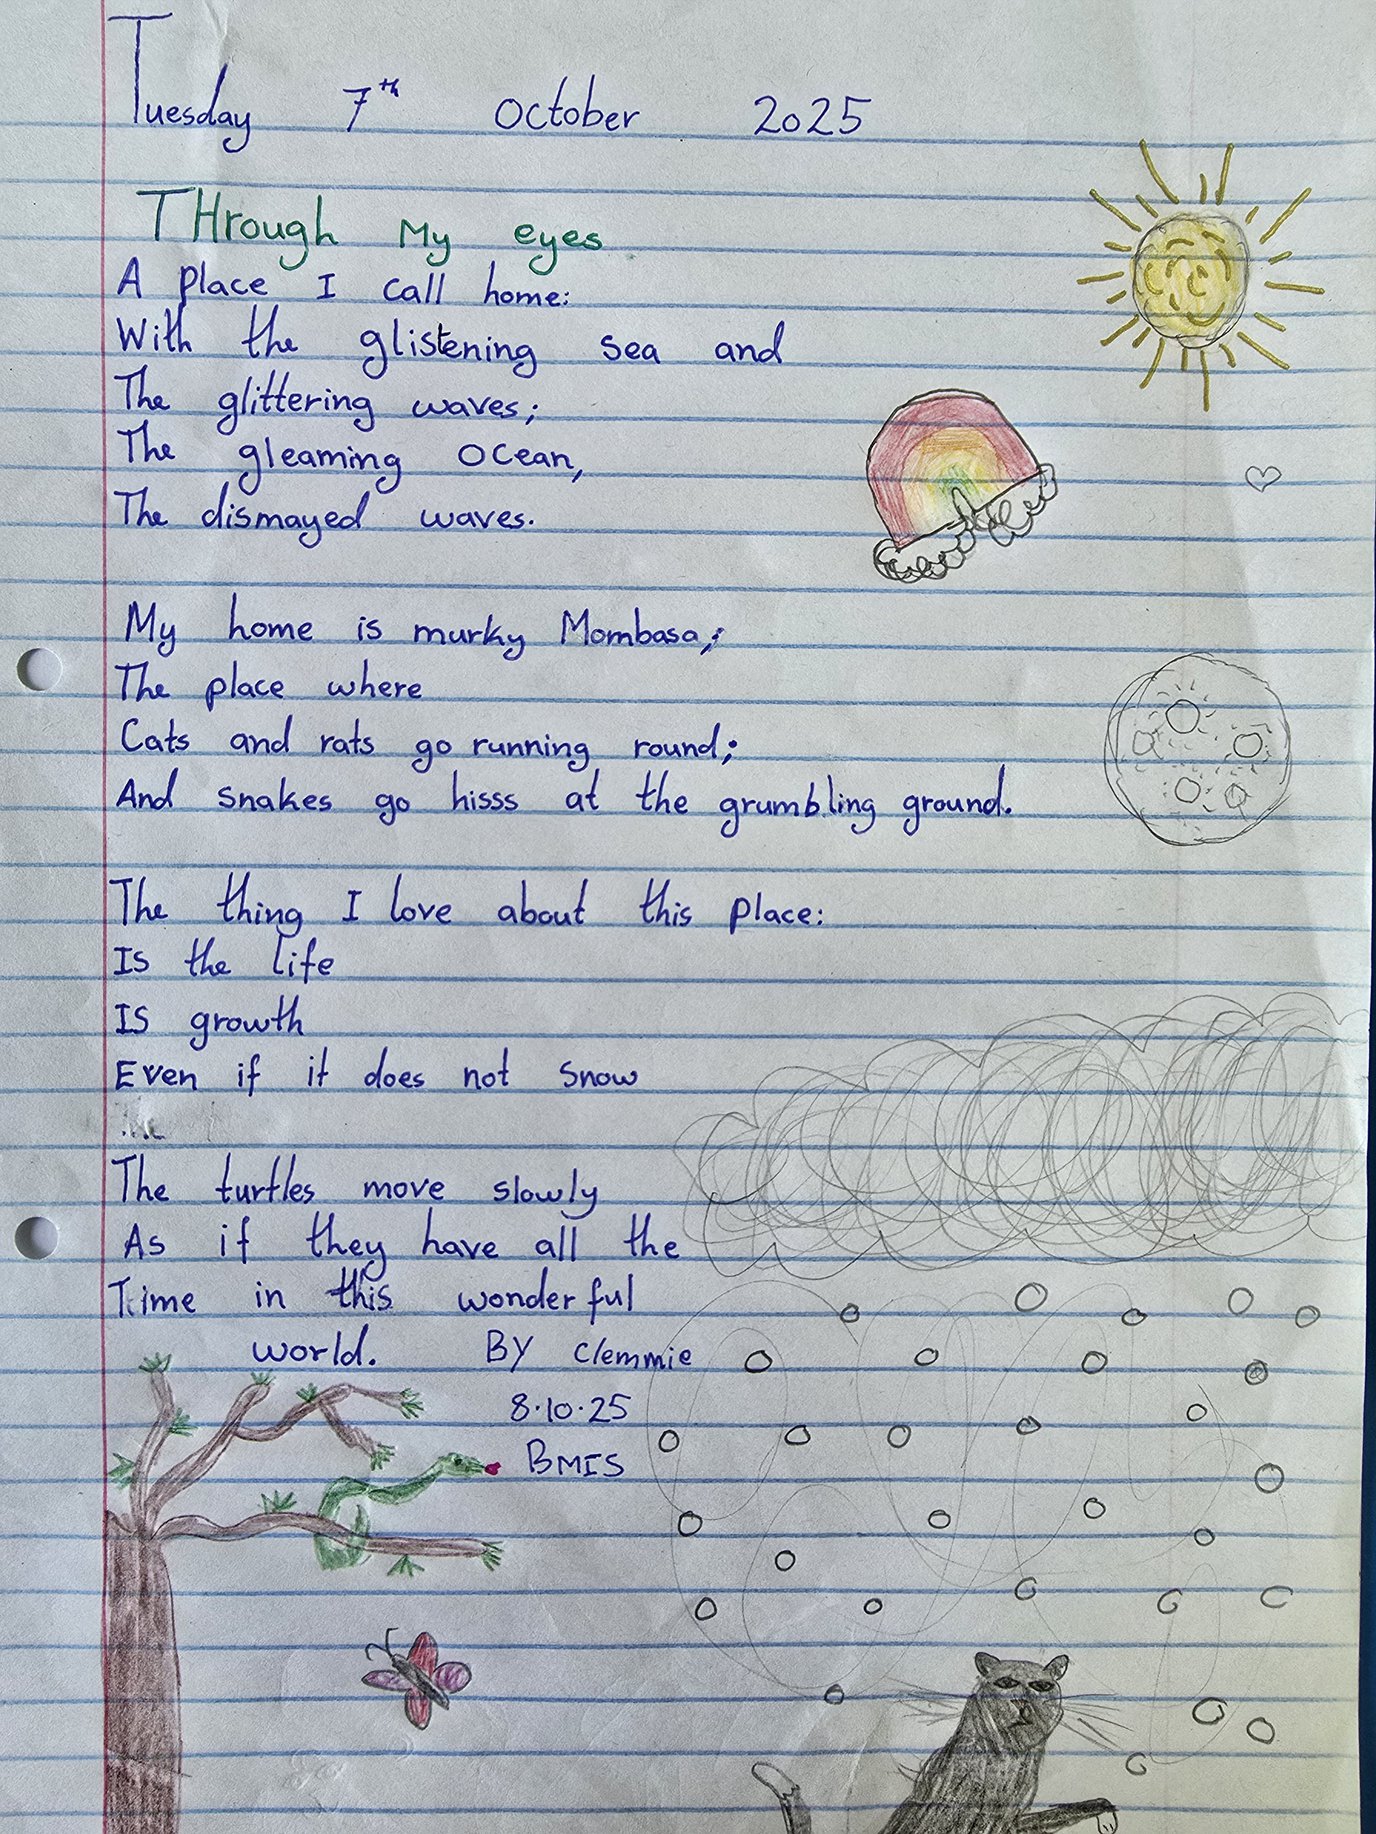 Tuesday 7th October 2025
THrough My eyes
A place I call home:
With the glistening sea and
The glittering waves;
The gleaming ocean,
The dismayed waves.
My home is murky Mombasa;
The place where
Cats and rats go running round;
And snakes go hisss at the grumbling ground.
The thing I love about this place:
Is the life
Is growth
Even if it does not snow
The turtles move slowly
As if they have all the
Time in this wonderful
world. By Clemmie
8.10.25
BMIS